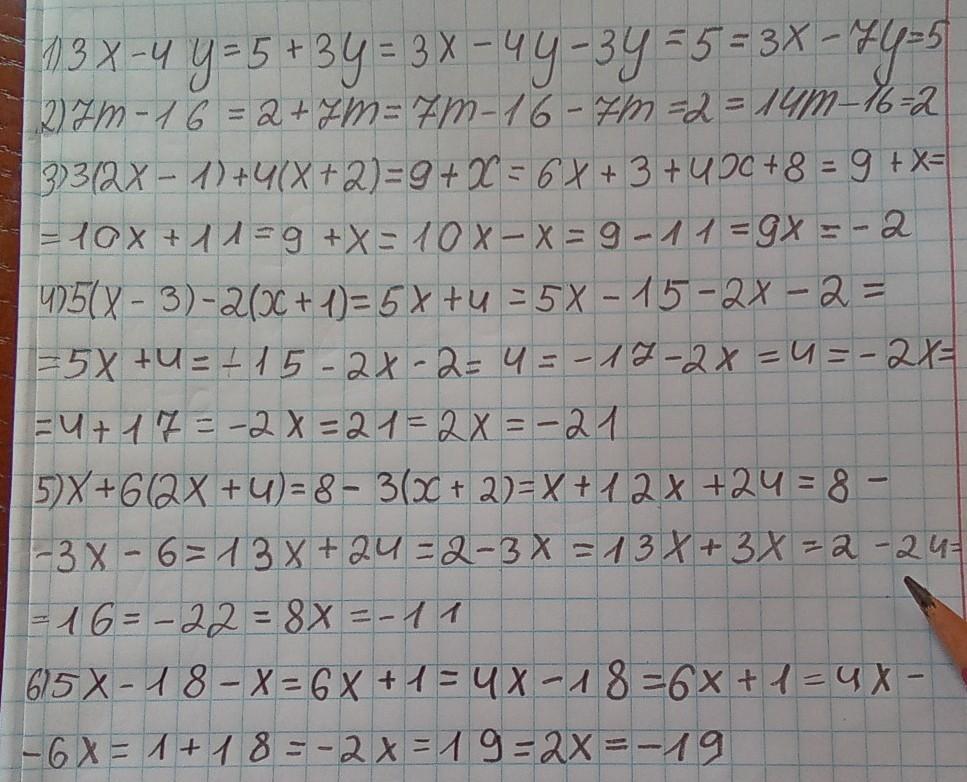 1)3x-4y=5+3y=3x-4y-3y=5=3x-7y=5
2)7m-16=2+7m=7m-16-7m=2=14m-16=2
3)3(2x-1)+4(x+2)=9+x=6x+3+4x+8=9+x=
=10x+11=9+x=10x-x=9-11=9x=-2
4)5(x-3)-2(x+1)=5x+4=5x-15-2x-2=
=5x+4=-15-2x-2=4=-17-2x=4=-2x=
=4+17=-2x=21=2x=-21
5)x+6(2x+4)=8-3(x+2)=x+12x+24=8-
-3x-6=13x+24=2-3x=13x+3x=2-24=
=16=-22=8x=-11
6)5x-18-x=6x+1=4x-18=6x+1=4x-
-6x=1+18=-2x=19=2x=-19